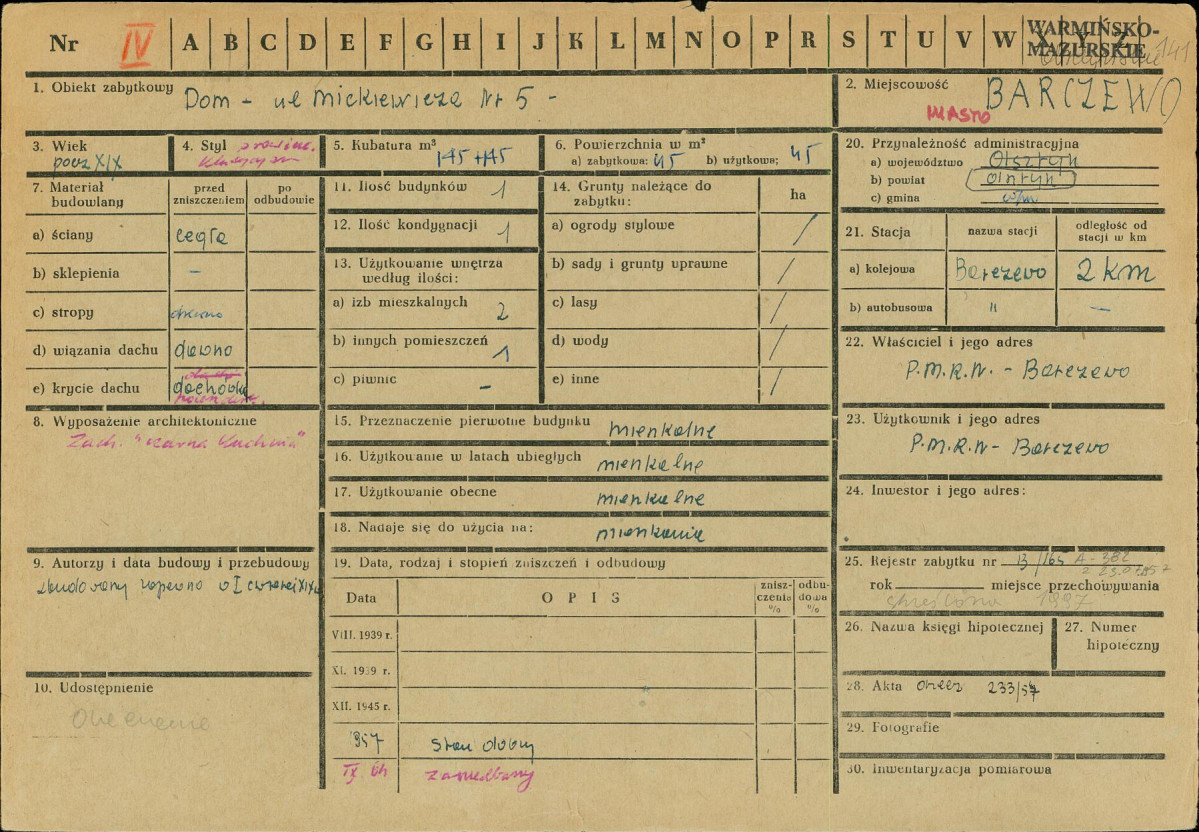 Nr IV A B C D E F G H I J K L M N O P R S T U V W X Y Z
WARMIŃSKO-
MAZURSKIE 141
1. Obiekt zabytkowy Dom - ul Mickiewicza Nr 5 -
2. Miejscowość BARCZEWO
MIASTO
3. Wiek
pocz XIX
4. Styl prowinc.
klasycyzm
5. Kubatura m³
145 + 145
6. Powierzchnia w m²
a) zabytkowa: 45 b) użytkowa; 45
7. Materiał
budowlany
przed
zniszczeniem
po
odbudowie
a) ściany cegła
b) sklepienia –
c) stropy drewno
d) wiązania dachu drewno
e) krycie dachu dachówka
8. Wyposażenie architektoniczne
Zach. "czarna kuchnia"
9. Autorzy i data budowy i przebudowy
zbudowany zapewne w I czwierci XIX w
10. Udostępnienie
11. Ilość budynków 1
12. Ilość kondygnacji 1
13. Użytkowanie wnętrza
według ilości:
a) izb mieszkalnych 2
b) innych pomieszczeń 1
c) piwnic –
14. Grunty należące do
zabytku:
ha
a) ogrody stylowe /
b) sady i grunty uprawne /
c) lasy /
d) wody /
e) inne /
15. Przeznaczenie pierwotne budynku mieszkalne
16. Użytkowanie w latach ubiegłych mieszkalne
17. Użytkowanie obecne mieszkalne
18. Nadaje się do użycia na: mieszkania
19. Data, rodzaj i stopień zniszczeń i odbudowy
Data
OPIS
znisz-
czenia
%
odbu-
dowa
%
VIII. 1939 r.
XI. 1939 r.
XII. 1945 r.
957 Stan dobry
IX. 64 zaniedbany
20. Przynależność administracyjna
a) województwo Olsztyn
b) powiat Olsztyn
c) gmina w/m
21. Stacja
nazwa stacji
odległość od
stacji w km
a) kolejowa Barczewo 2 km
b) autobusowa " –
22. Właściciel i jego adres
P.M.R.N. - Barczewo
23. Użytkownik i jego adres
P.M.R.N - Barczewo
24. Inwestor i jego adres:
25. Rejestr zabytku nr 13/165 A-382
z 23.07.1957
rok miejsce przechowywania
skreślono 1987
26. Nazwa księgi hipotecznej
27. Numer
hipoteczny
28. Akta 233/57
29. Fotografie
30. Inwentaryzacja pomiarowa